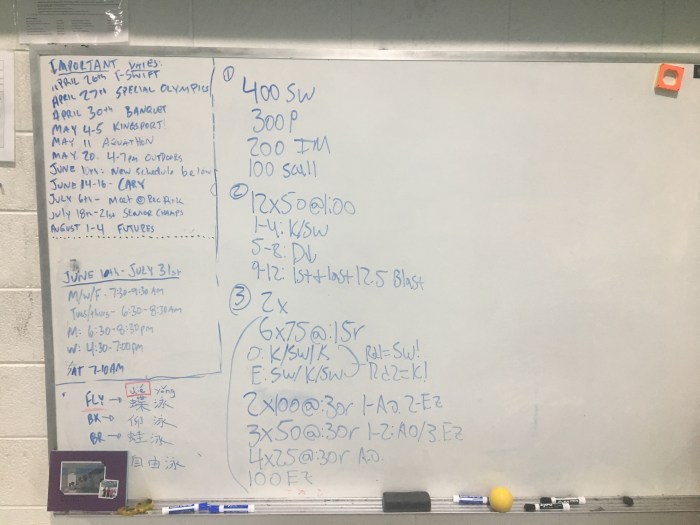 IMPORTANT DATES:
APRIL 26th T-SWIFT
APRIL 27th SPECIAL OLYMPICS
APRIL 30th BANQUET
MAY 4-5 KINGSPORT!
MAY 11 AQUATHON
MAY 20. 4-7pm OUTDOORS
JUNE 10th: New schedule below
JUNE 14-16- CARY
JULY 6th- Meet @
July 18th-21st SENIOR CHAMPS
AUGUST 1-4 FUTURES
JUNE 10th - JULY 31st
M/W/F - 7:30-9:30 AM
Tues/thurs - 6:30-8:30AM
M: 6:30-8:30pm
W: 4:30-7:00pm
SAT 7-10AM
dié yǒng
FLY → 蝶泳
BK → 仰泳
BR → 蛙泳
自由泳
①
400 SW
300 P
200 IM
100 Scull
②
12x50@1:00
1-4: K/SW
5-8: Dr
9-12: 1st + last 12.5 Blast
③ 2x
6x75@:15r
O: K/SW/K
E: SW/K/SW
Rd1=SW!
Rd2=K!
2x100@:30r 1-A.O. 2-EZ
3x50@:30r 1-2: AO/3. EZ
4x25@:30r A.O.
100 EZ